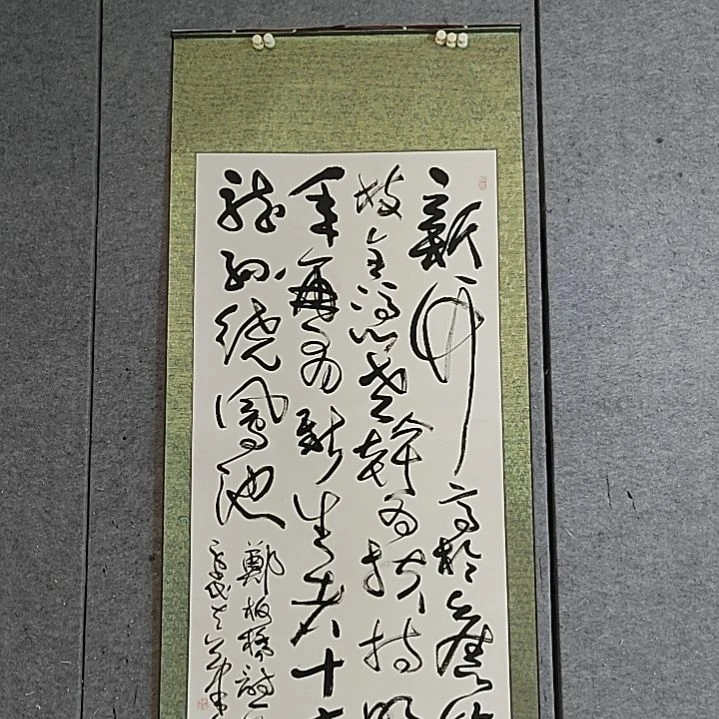 新竹高於舊
枝全憑老幹為扶持
年再有新生者十
龍孫繞鳳池
鄭板橋詩